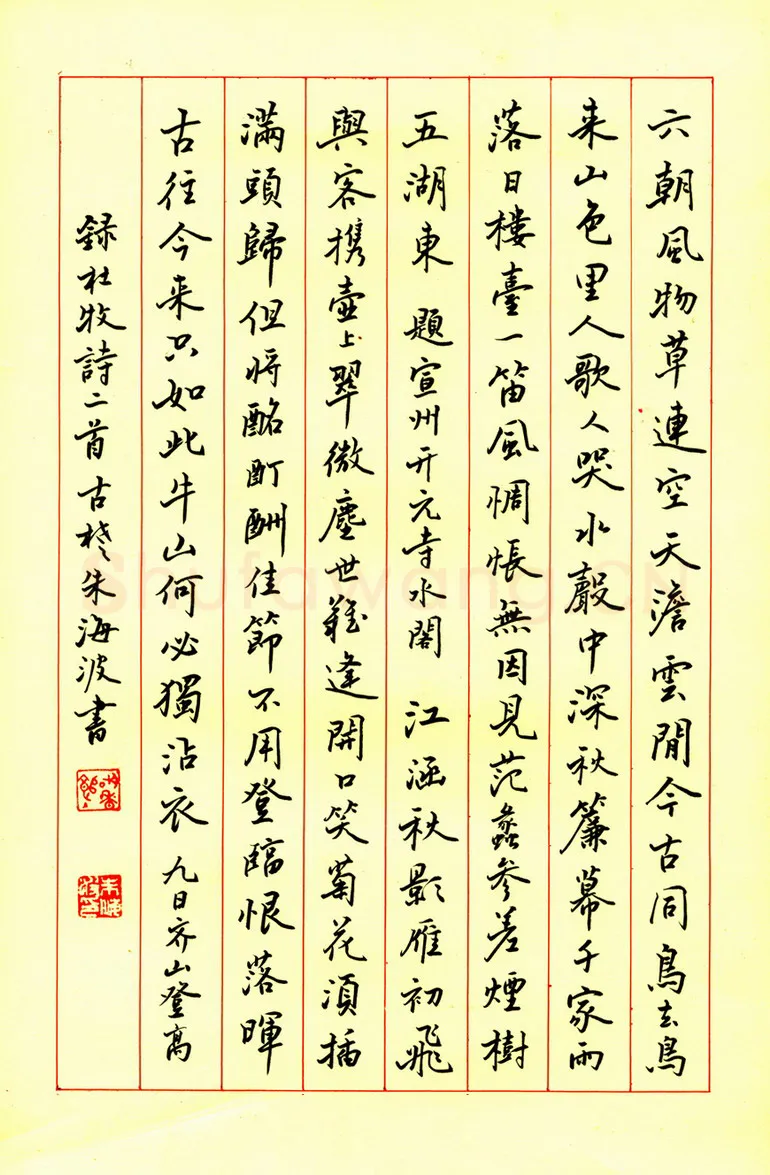 六朝風物草連空天澹雲閒今古同鳥去鳥
来山色里人歌人哭水聲中深秋簾幕千家雨
落日樓臺一笛風惆悵無因見范蠡參差煙樹
五湖東 題宣州开元寺水閣 江涵秋影雁初飛
與客携壺上翠微塵世難逢開口笑菊花須插
滿頭歸但將酩酊酬佳節不用登臨恨落暉
古往今来只如此牛山何必獨沾衣 九日齐山登高
録杜牧詩二首古椘朱海波書
Shufawang.CN